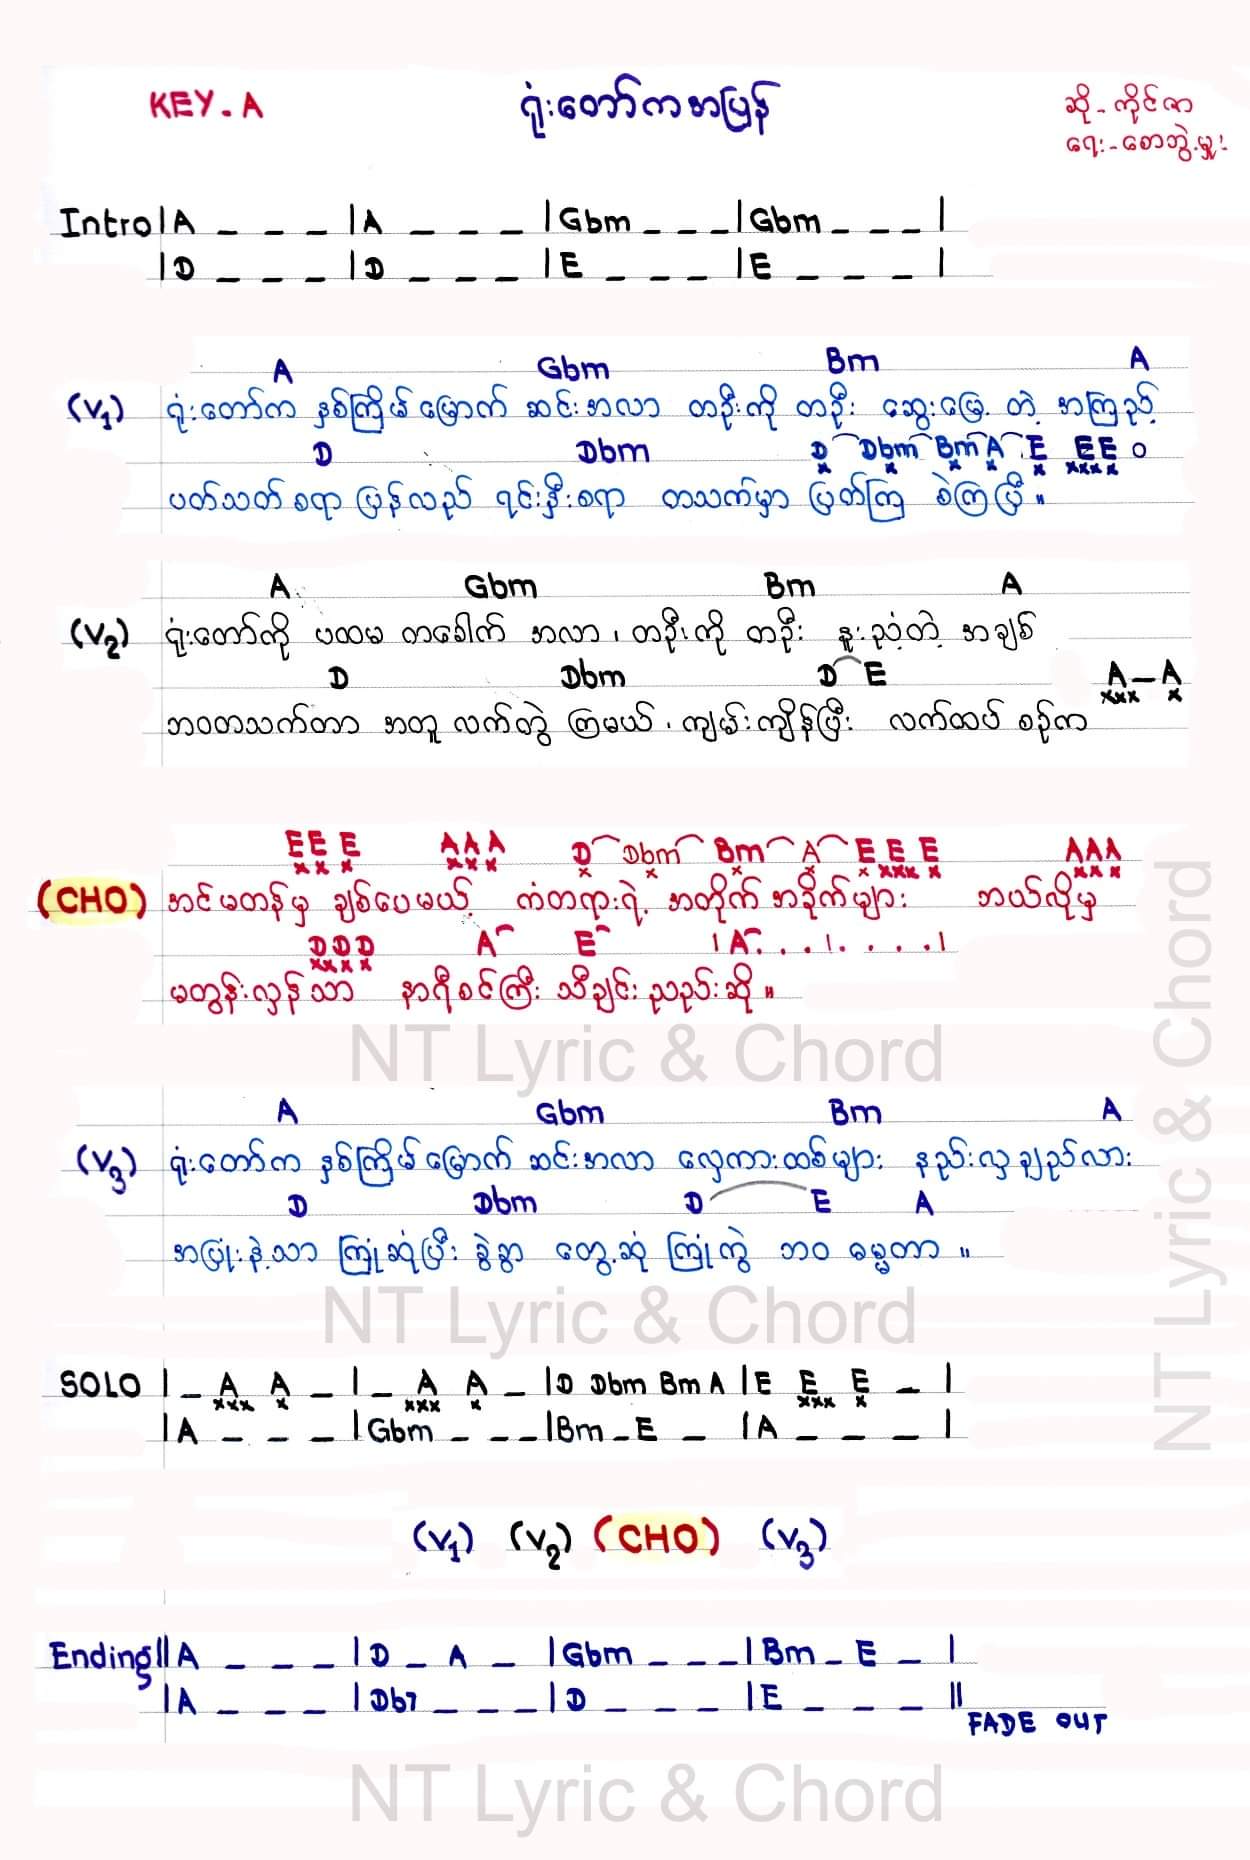 KEY-A ရုံးတော်ကအပြန် ဆို-ကိုင်ဇာ
ရေး-စောဘွဲ့မှူး
Intro |A _ _ _ |A _ _ _ |Gbm _ _ _ |Gbm _ _ _ |
|D _ _ _ |D _ _ _ |E _ _ _ |E _ _ _ |
A Gbm Bm A
(V1) ရုံးတော်က နှစ်ကြိမ်မြောက် ဆင်းအလာ တဦးကို တဦး ဆွေးမြေ့တဲ့ အကြည့်
D Dbm D Dbm Bm A E EE o
x x x x x xxxx
ပတ်သတ်စရာ ပြန်လည် ရင်းနှီးစရာ တသက်မှာ ပြတ်ကြ စဲကြပြီ။
A Gbm Bm A
(V2) ရုံးတော်ကို ပထမ တခေါက် အလာ၊ တဦးကို တဦး နူးညံ့တဲ့ အချစ်
D Dbm D E A-A
xxx x
ဘဝတသက်တာ အတူ လက်တွဲ ကြမယ်၊ ကျမ်းကျိန်ပြီး လက်ထပ် စဉ်က
EE E AAA D Dbm Bm A E E E AAA
xx x xxx x x x x xxx x xxx
(CHO) အင်မတန်မှ ချစ်ပေမယ့် ကံတရားရဲ့ အတိုက်အခိုက်များ ဘယ်လိုမှ
DDD A E |A . . . | . . . . |
xxx x
မတွန်းလှန်သာ နာရီစင်ကြီး သီချင်းညည်းဆို။
NT Lyric & Chord
NT Lyric & Chord
A Gbm Bm A
(V3) ရုံးတော်က နှစ်ကြိမ်မြောက် ဆင်းအလာ လှေကားထစ်များ နည်းလှချည်လား
D Dbm D E A
အပြုံးနဲ့သာ ကြုံဆုံပြီး ခွဲခွာ တွေ့ဆုံ ကြုံကွဲ ဘဝ ဓမ္မတာ။
NT Lyric & Chord
SOLO |_ A A _ |_ A A _ |D Dbm Bm A |E E E _ |
xxx x xxx x xxx x
|A _ _ _ |Gbm _ _ _ |Bm _ E _ |A _ _ _ |
(V1) (V2) (CHO) (V3)
Ending ||A _ _ _ |D _ A _ |Gbm _ _ _ |Bm _ E _ |
|A _ _ _ |Db7 _ _ _ |D _ _ _ |E _ _ _ ||
FADE OUT
NT Lyric & Chord